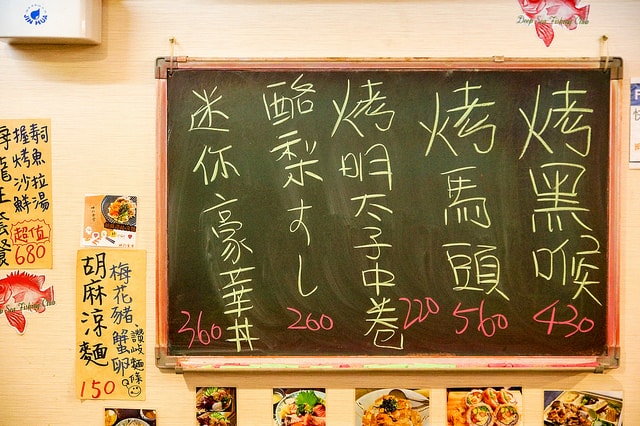 烤黑喉
430
烤馬頭
560
烤明太子中卷
220
酪梨すし
260
迷你豪華丼
360
握壽司
烤魚
沙拉
鮮湯
龍王套餐
超值
680
梅花豬蟹卵
讚岐麵條
胡麻涼麵
150
JIN HUA
Deep Sea Fishing Club